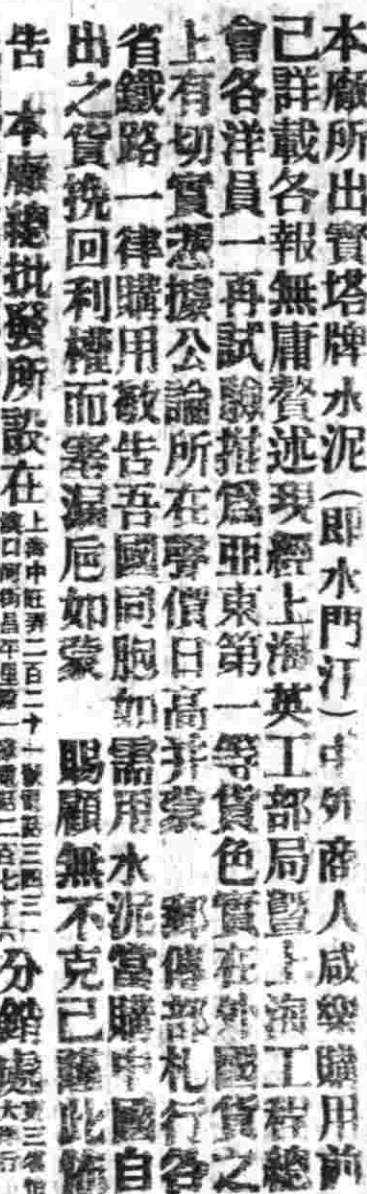 本廠所出寶塔牌水泥（即水門汀）中外商人咸樂購用前
已詳載各報無庸贅述現經上海英工部局暨上海工程總
會各洋員一再試驗推爲亞東第一等貨色實在外國貨之
上有切實憑據公論所在聲價日高并蒙 郵傳部札行各
省鐵路一律購用敬告吾國同胞如需用水泥當購中國自
出之貨挽回利權而塞漏卮如蒙 賜顧無不克己謹此佈
告 本廠總批發所設在上海中旺弄二百二十一號電話三四三一
漢口河街昌年里電話二百七十六
分銷處